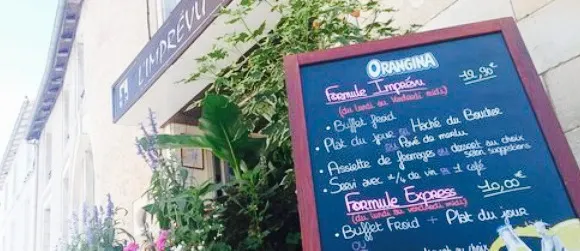 L'IMPRÉVU
ORANGINA
Formule Imprévu 12,90€
(du lundi au Vendredi midi)
• Buffet froid
• Plat du jour ou Haché du Boucher
ou Pavé de merlu
• Assiette de fromages ou dessert au choix
selon suggestions
• Servi avec 1/4 de vin ou 1 café
Formule Express 10,00€
(du lundi au vendredi midi)
• Buffet Froid + Plat du jour
ou
au choix